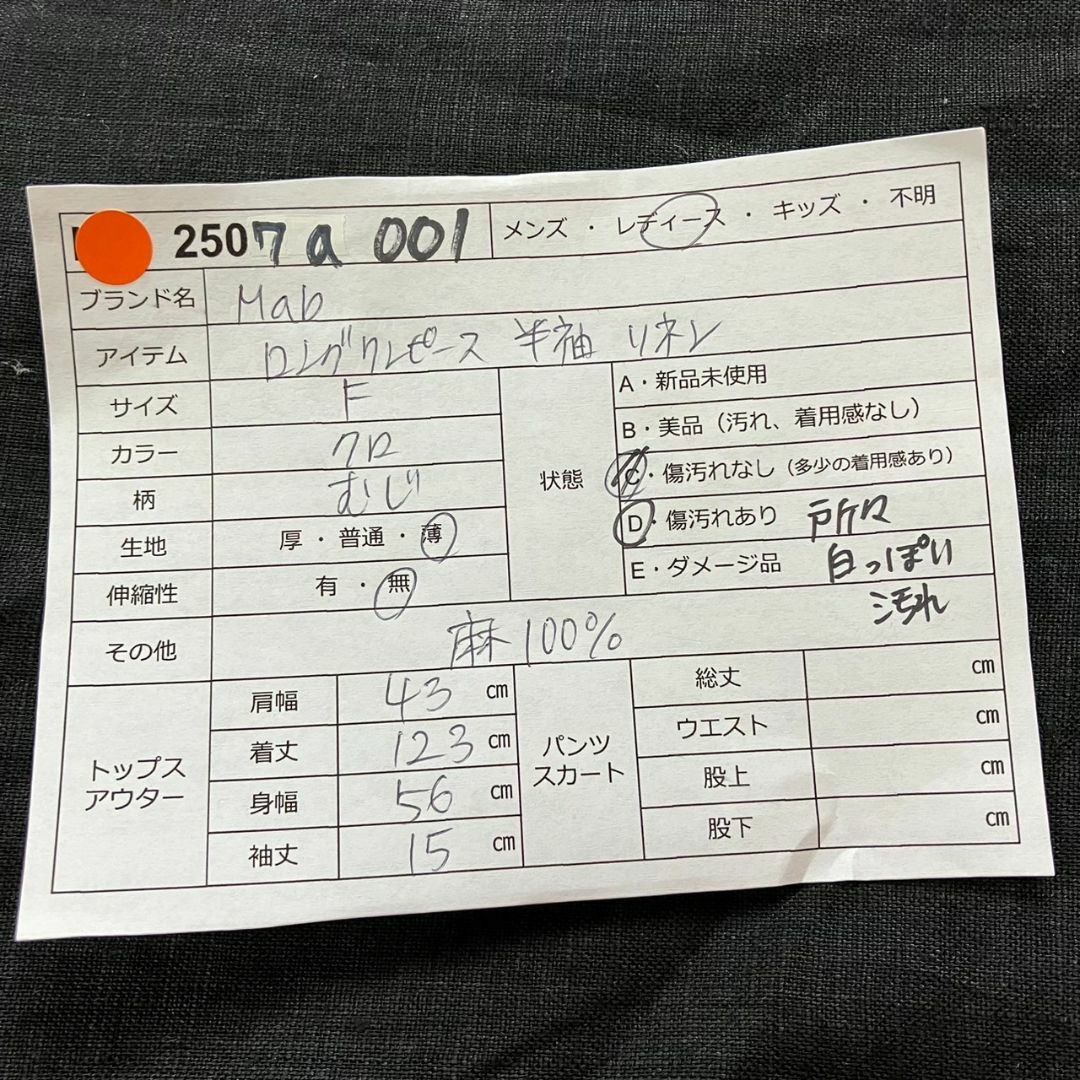 2507a 001 メンズ ・ レディース ・ キッズ ・ 不明
ブランド名 Mab
アイテム ロングワンピース 半袖 リネン
サイズ F
カラー クロ
柄 むじ
生地 厚 ・ 普通 ・ 薄
伸縮性 有 ・ 無
状態
A・新品未使用
B・美品（汚れ、着用感なし）
C・傷汚れなし（多少の着用感あり）
D・傷汚れあり 所々
E・ダメージ品 白っぽい
汚れ
その他 麻100%
トップス
アウター
肩幅 43 cm
着丈 123 cm
身幅 56 cm
袖丈 15 cm
パンツ
スカート
総丈 cm
ウエスト cm
股上 cm
股下 cm